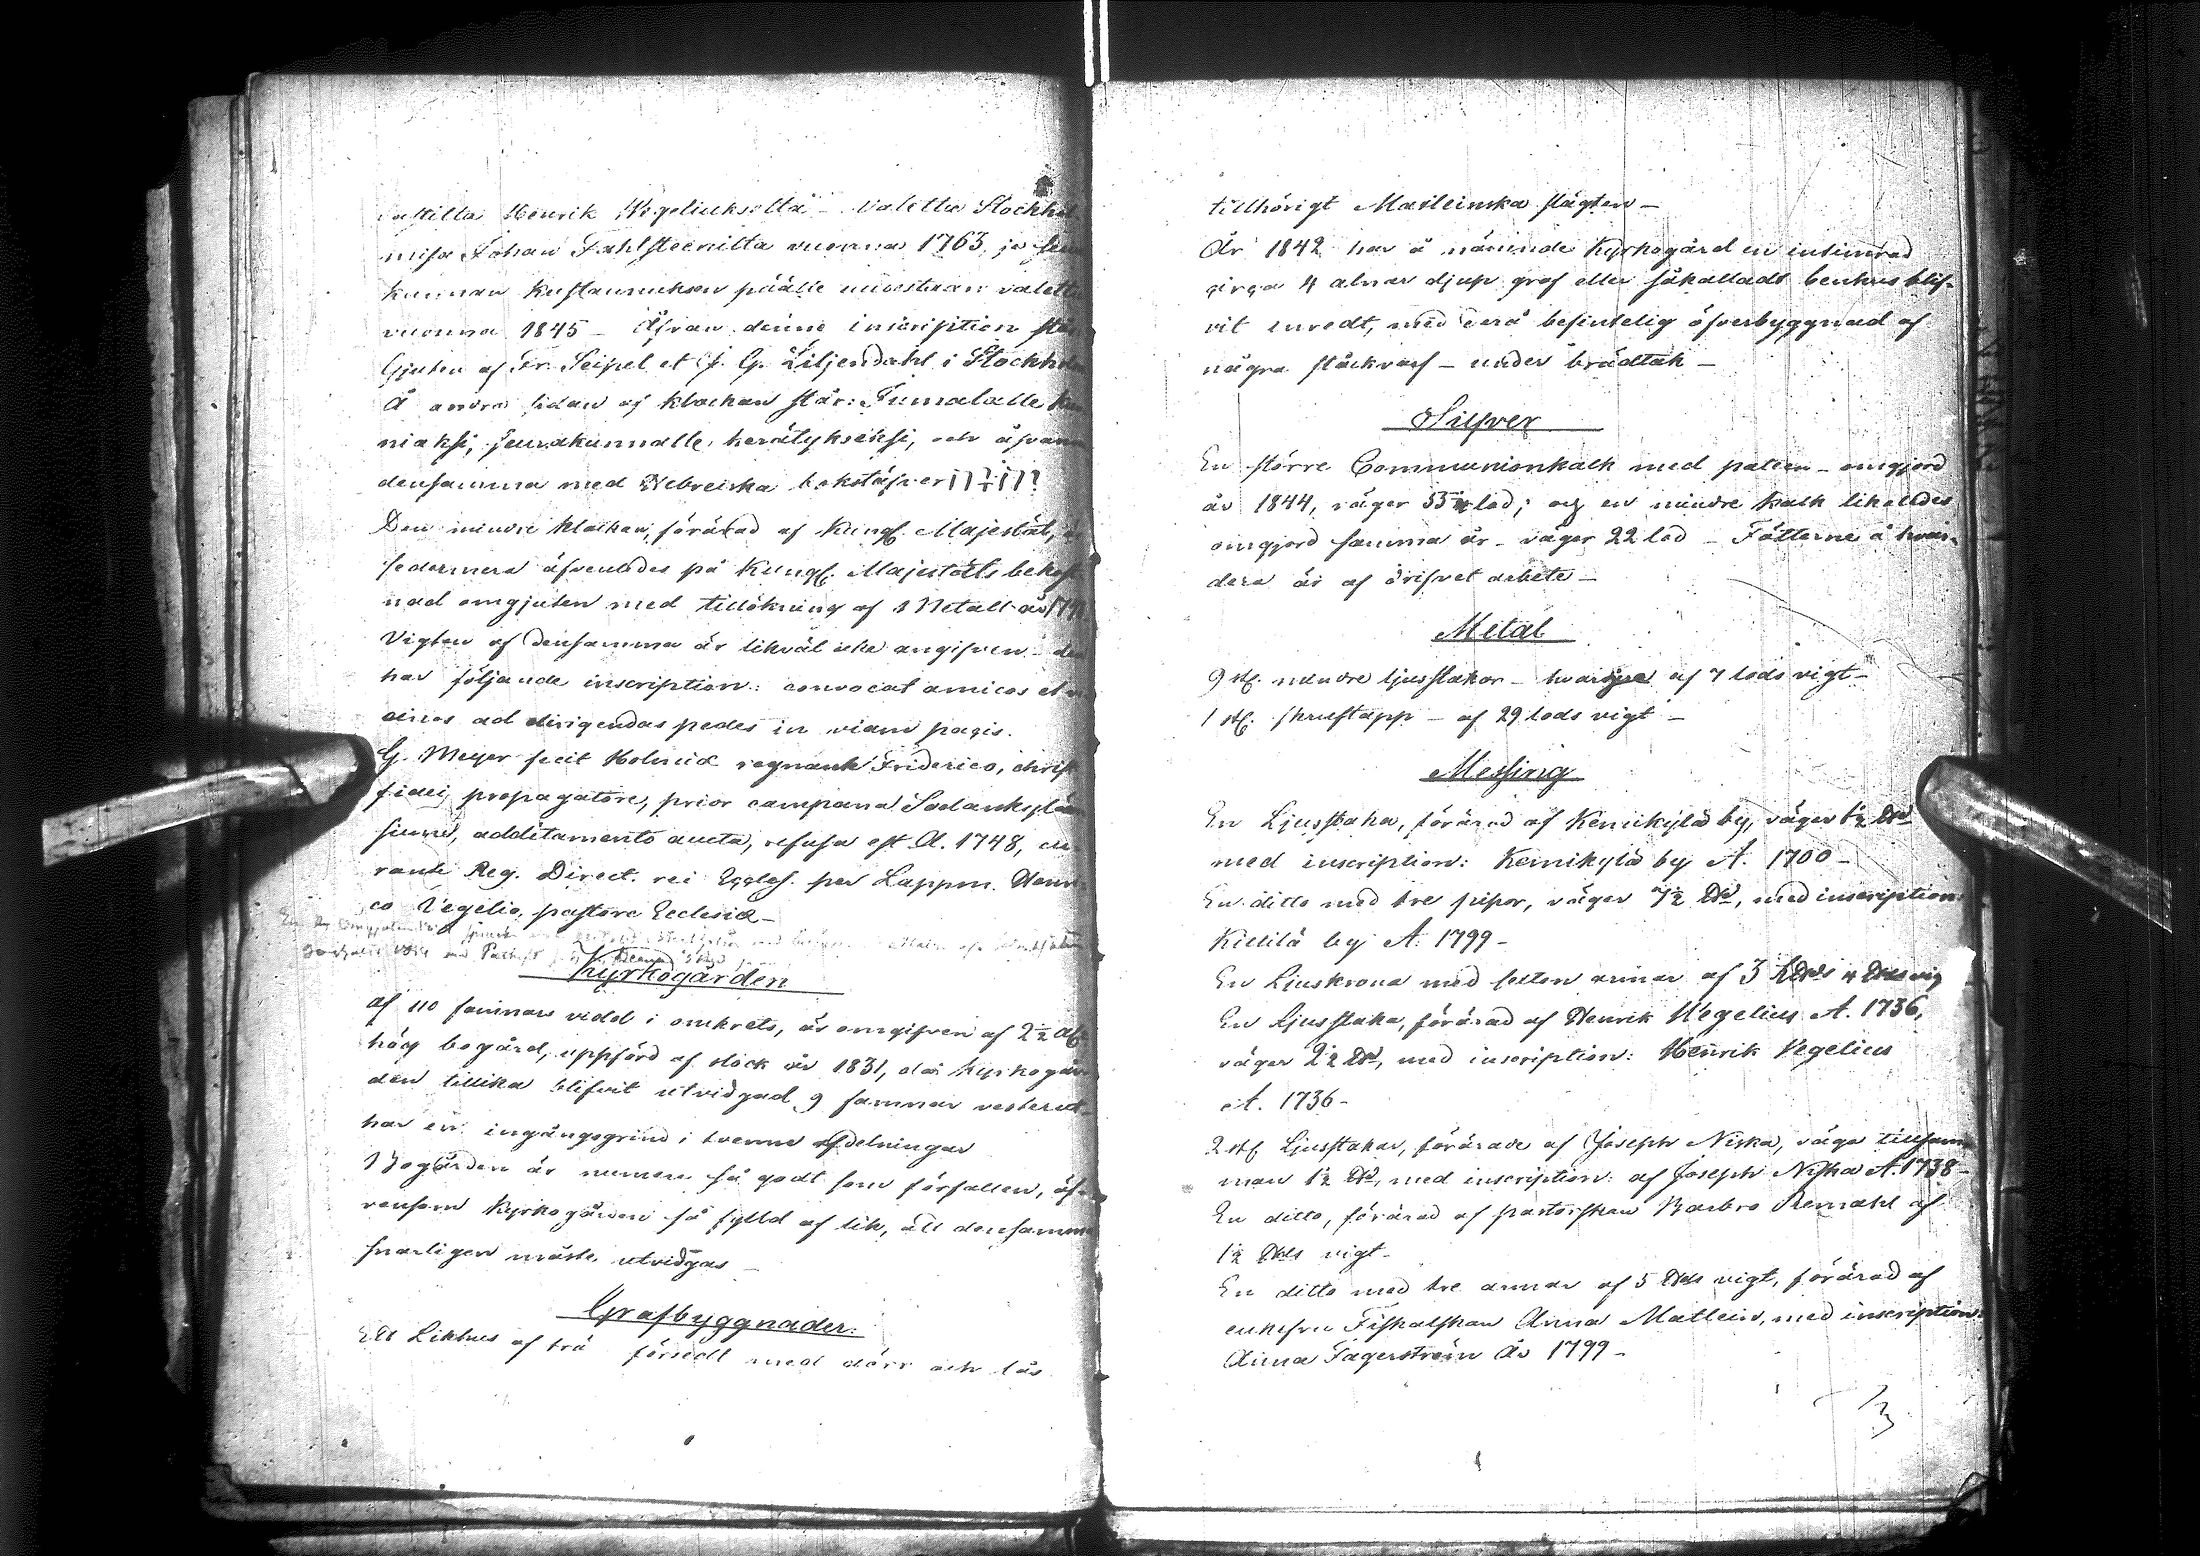 Henrik Wegeliukselta – valettu Stockhol
misa Johan Fahlsteenilta vuonna 1763, ja
kunnan Kustannuksen päälle uudestaan valettu
vuonna 1845 – Ofvan denne inscription står
Gjuten af Fr. Seipel et J. G. Liljendahl i Stockholm
Å andra sidan af klockan står: Jumalalle kun
niaksi, seurakunnalle herätykseksi, och ofvan
densamma med Hebreiska bokstäfver
Den mindre klockan, förärad af Kungl. Majestät,
sedermera äfvenledes på Kungl. Majestäts bekost
nad omgjuten med tillökning af Metall
Vigten af densamma är likväl icke angifven – den
har följande inscription: convocat amicos et
cinos ad dirigendas pedes in viam pacis.
G. Meyer fecit Holmiæ regnante Friderico, christ
fidei propagatore, prior campana Sodankylä
siens, additamento aucta, refusa est A. 1748, cu
rante Reg. Direct. rei Eccles. per Lappm. Henri
co Vegelio, pastore Ecclesiæ –
Kyrkogården
af 110 famnars vidd i omkrets, är omgifven af 2½ al
hög bogård, uppförd af stock år 1831, då kyrkogår
den tillika blifvit utvidgad 9 famnar vesterut
har en ingångsgrind i tvenne afdelningar
Bogården är numera så godt som förfallen, äf
vensom Kyrkogården så fylld af lik, att densamma
snarligen måste utvidgas –
Grafbyggnader.
Ett Likhus af trä försedt med dörr och lås
tillhörigt Matleinska slägten –
År 1842 har å nämnde Kyrkogård en
circa 4 alnar djup graf eller såkalladt benhus blif-
vit inredt, med derå befintelig öfverbyggnad af
några stockvarf – under brädtak –
Silfver
En större Communionkalk med paten – omgjord
år 1844, väger 53 lod; och en mindre kalk likaledes
omgjord samma år – väger 22 lod – Fötterne å hvar-
dera är af drifvet arbete –
Metal
9 st. mindre ljusstakar – hvarje af 7 lods vigt –
1 st. skruftapp – af 29 lods vigt –
Messing
En Ljusstaka, förärad af Kemikylä by, väger
med inscription: Kemikylä by A. 1700 –
En ditto med tre pipor, väger 7½ ℔, med inscription
Kittilä by A. 1799 –
En Ljuskrona med sexton armar af 3
En Ljusstaka, förärad af Henrik Wegelius A. 1736,
väger 2½ ℔, med inscription: Henrik Vegelius
A. 1736 –
2 st. Ljusstakar, förärade af Joseph Niska, väga tillsam
man 1½ ℔, med inscription: af Joseph Niska A. 1738 –
En ditto, förärad af pastorskan Barbro Remahl af
1½ ℔s vigt –
En ditto med tre armar af 5 ℔s vigt, förärad af
enkefru Fiskalskan Anna Matlein, med inscription:
Anna Fagerström År 1799 –